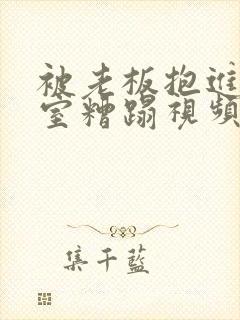 被老板抱进
室糟蹋視頻
集千藍